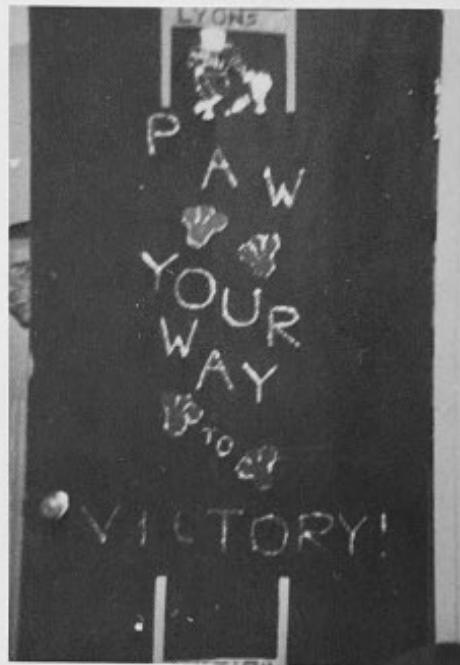 LYONS
PAW
YOUR
WAY
TO
VICTORY!